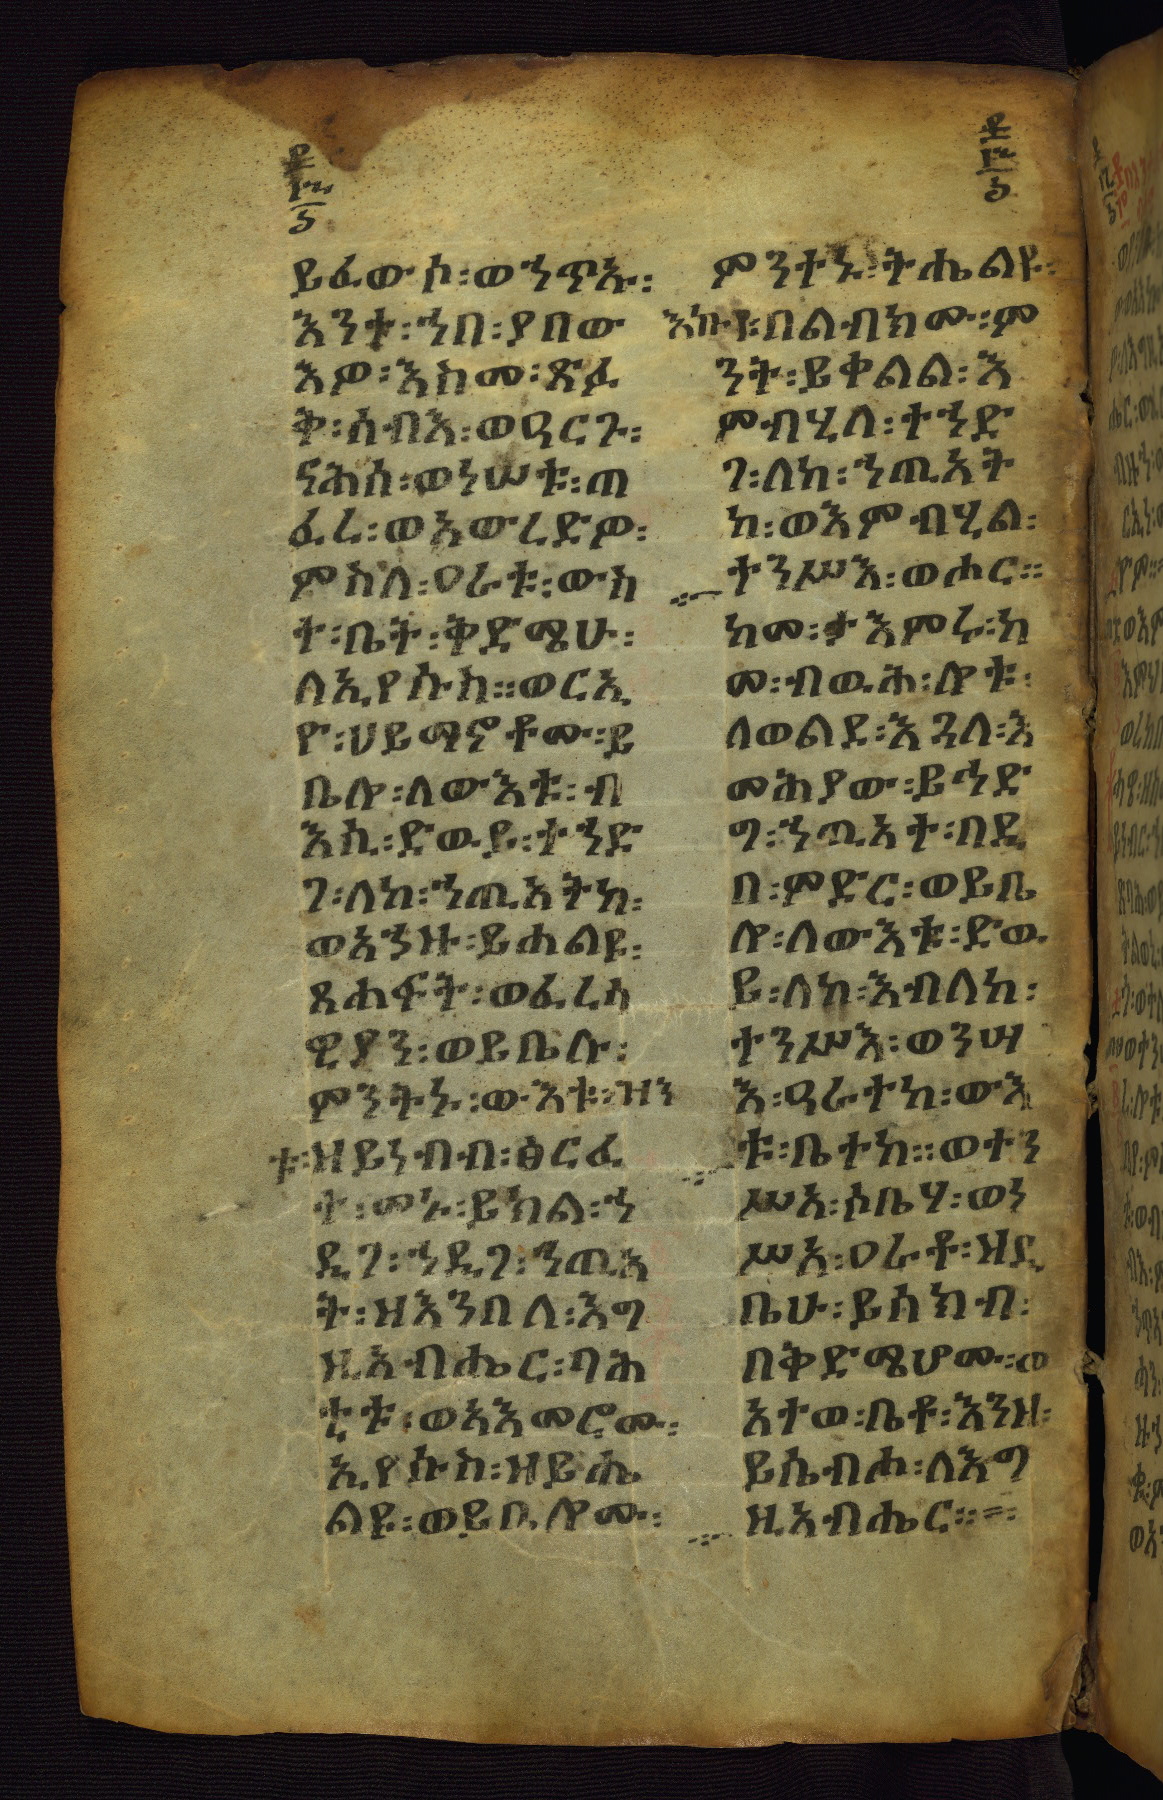 ይፈውሶ፡ወኀጥኡ፡
እንተ፡ኀበ፡ያበው
እዎ፡እስመ፡ጽፉ
ቅ፡ሰብእ፡ወዓርጉ፡
ናሕሰ፡ወነሠቱ፡ጠ
ፈረ፡ወአውረድዎ፡
ምስለ፡ዐራቱ፡ውስ
ተ፡ቤት፡ቅድሜሁ፡
ለኢየሱስ።ወርኢ
ዮ፡ሀይማኖቶሙ፡ይ
ቤሎ፡ለውእቱ፡ብ
እሲ፡ድውይ፡ተኀድ
ገ፡ለከ፡ኀጢአትከ፡
ወአኀዙ፡ይሐልዩ፡
ጸሐፍት፡ወፈረሳ
ዊያን፡ወይቤሉ፡
ምንትኑ፡ውእቱ፡ዝን
ቱ፡ዘይነብብ፡ፅርፈ
ተ፡መኑ፡ይክል፡ኀ
ዲገ፡ኀዲገ፡ኀጢአ
ት፡ዘእንበለ፡እግ
ዚአብሔር፡ባሕ
ቲቱ፡ወአእመሮሙ፡
ኢየሱስ፡ዘይሔ
ልዩ፡ወይቢሎሙ፡
ምንተኑ፡ትሔልዩ፡
እኩየ፡በልብክሙ፡ም
ንት፡ይቀልል፡እ
ምብሂለ፡ተኀድ
ገ፡ለከ፡ኀጢአት
ከ፡ወእምብሂል፡
ተንሥእ፡ወሑር፡፡
ከመ፡ታእምሩ፡ከ
መ፡ብውሕ፡ሎቱ፡
ለወልደ፡እጓለ፡እ
መሕያው፡ይኅድ
ግ፡ኀጢአተ፡በዲ
በ፡ምድር፡ወይቤ
ሎ፡ለውእቱ፡ድው
ይ፡ለከ፡እብለከ፡
ተንሥእ፡ወንሣ
እ፡ዓራተከ፡ውእ
ቱ፡ቤተከ።ወተን
ሥአ፡ሶቤሃ፡ወነ
ሥአ፡ዐራቶ፡ዘዲ
ቤሁ፡ይሰክብ፡
በቅድሜሆሙ።ወ
አተወ፡ቤቶ፡እንዘ፡
ይሴብሖ፡ለእግ
ዚአብሔር።=፡